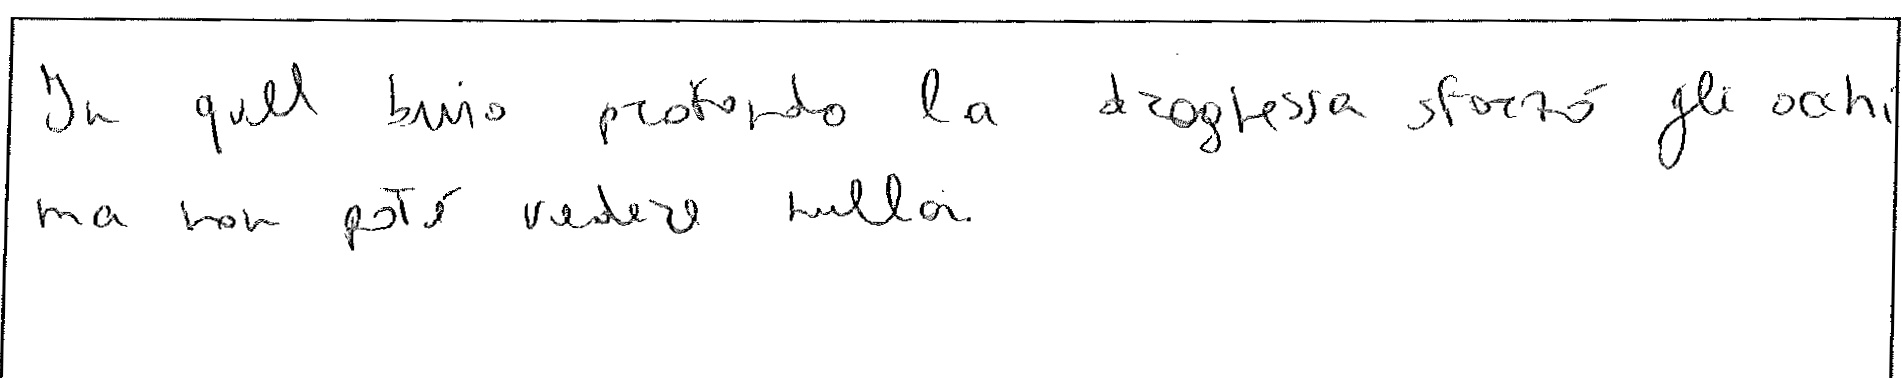 In quel buio profondo la draghessa sforzó gli occhi
ma non poté vedere nulla.